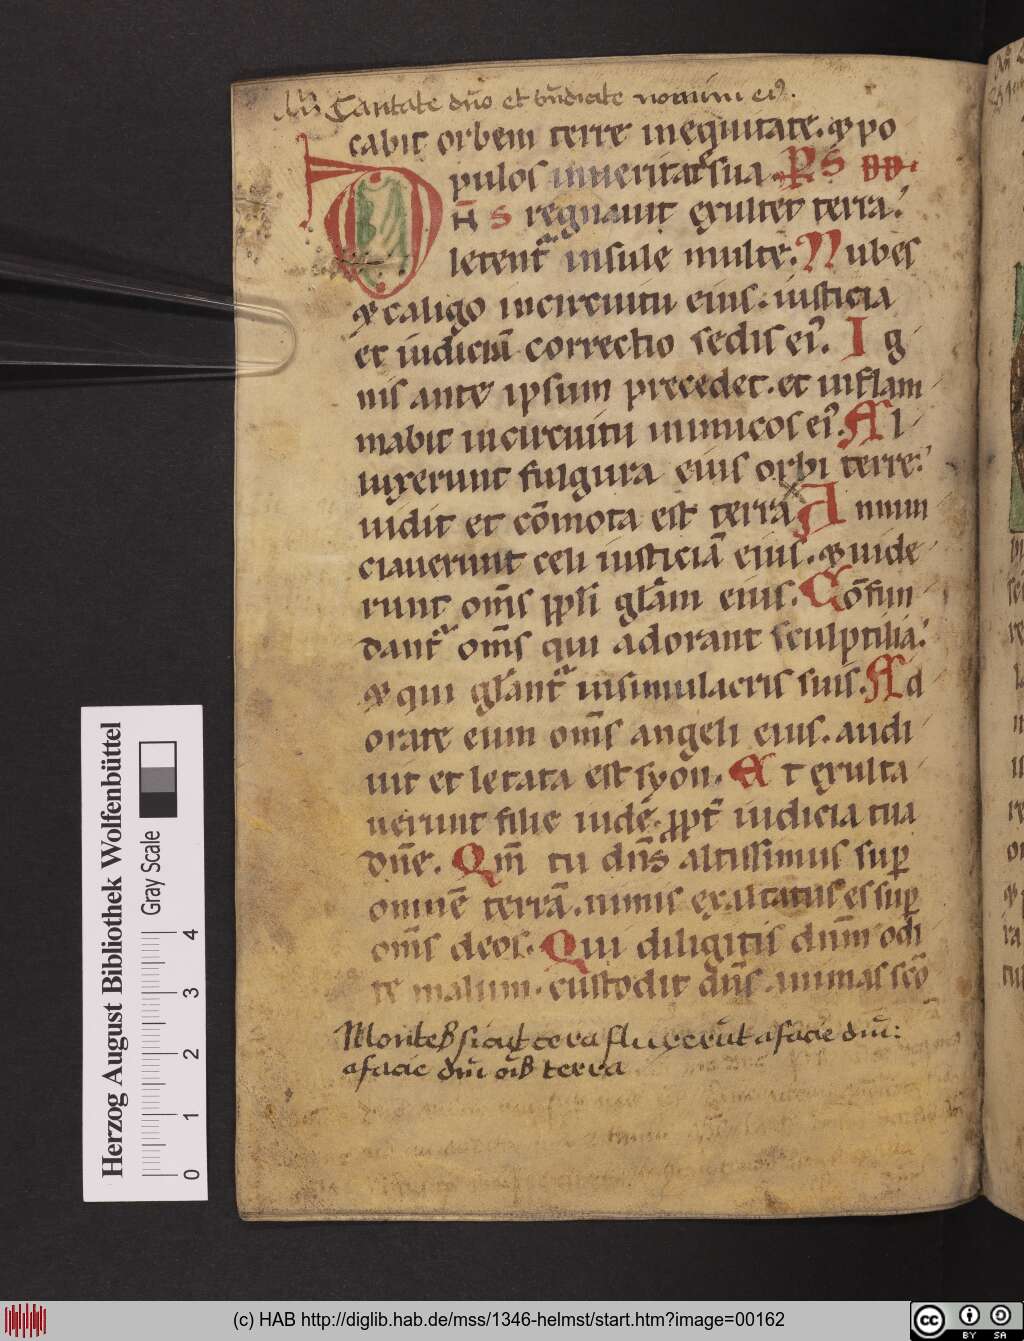 Cantate dn̄o et bn̄dicite nomini ei⁹.
cabit orbem terre in equitate. & po
pulos in ueritate sua. PS DD.
Dn̄s regnauit exultet terra:
letent͛ insule multe. Nubes
& caligo in circuitu eius. iusticia
et iudiciū correctio sedis ei⁹. Ig
nis ante ipsum precedet. et inflam
mabit in circuitu inimicos ei⁹. Al
luxerunt fulgura eius orbi terre:
uidit et cōmota est terra. Annun
ciauerunt celi iusticiā eius. & uide
runt om̄s ppl̄i gl̄am eius. Cōfun
dant͛ om̄s qui adorant sculptilia:
& qui gl̄ant͛ in simulacris suis. Ad
orate eum om̄s angeli eius. audi
uit et letata est syon. Et exulta
uerunt filie iude. ꝓpt̄ iudicia tua
dn̄e. Qm̄ tu dn̄s altissimus sup̱
omnē terrā. nimis exaltatus es sup̱
om̄s deos. Qui diligitis dn̄m odi
te malum. custodit dn̄s animas sc̄o
Montes sicut cera fluxerūt a facie dn̄i:
a facie dn̄i oīs terra
Herzog August Bibliothek Wolfenbüttel
Gray Scale
0 1 2 3 4
(c) HAB http://diglib.hab.de/mss/1346-helmst/start.htm?image=00162
cc BY SA